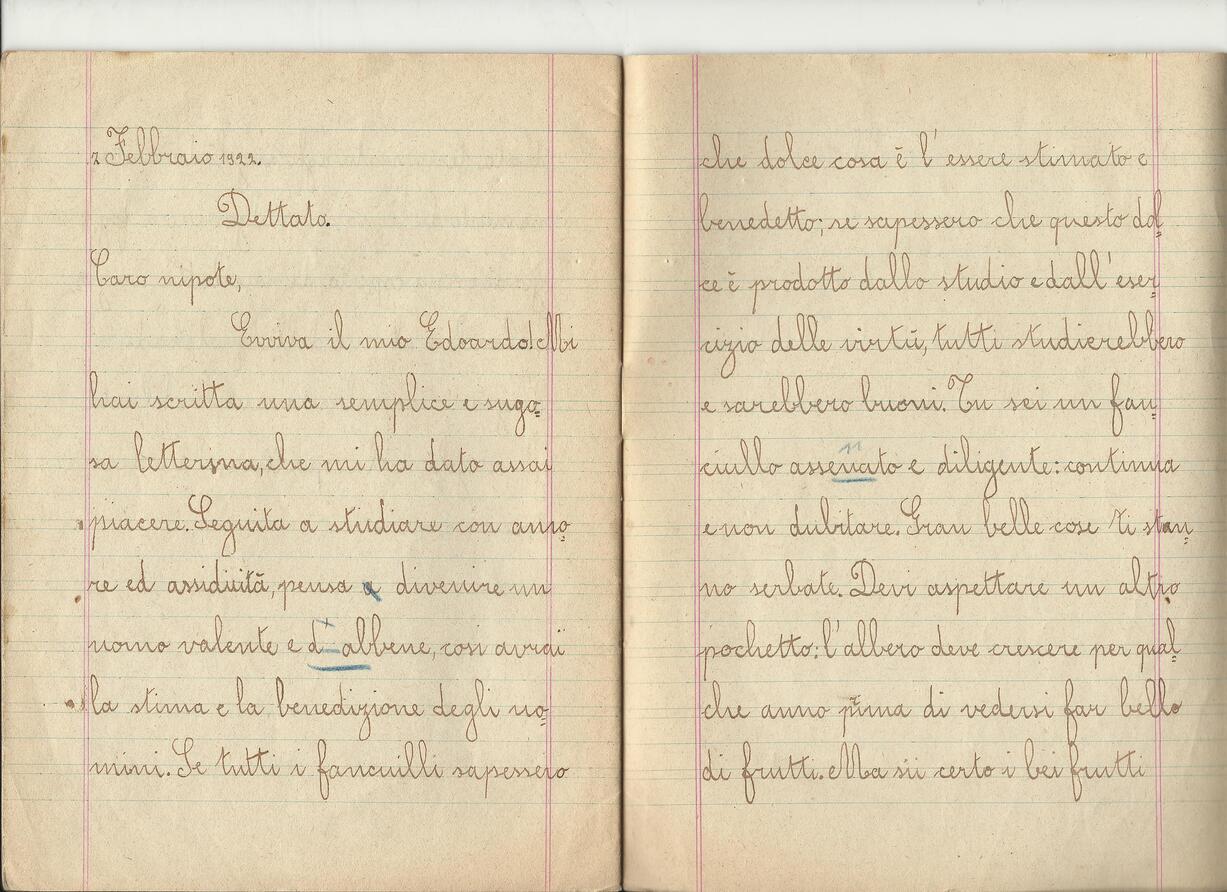 2 Febbraio 1922.
Dettato.
Caro nipote,
Evviva il mio Edoardo! Mi
hai scritta una semplice e sugo=
sa letterina, che mi ha dato assai
piacere. Seguita a studiare con amo=
re ed assiduità, pensa a divenire un
uomo valente e d abbene, così avrai
la stima e la benedizione degli uo=
mini. Se tutti i fancuilli sapessero
che dolce cosa è l'essere stimato e
benedetto; se sapessero che questo dol=
ce è prodotto dallo studio e dall'eser=
cizio delle virtù, tutti studierebbero
e sarebbero buoni. Tu sei un fan=
ciullo assenato e diligente: continua
e non dubitare. Gran belle cose ti stan=
no serbate. Devi aspettare un altro
pochetto: l'albero deve crescere per qual=
che anno prima di vedersi far bello
di frutti. Ma sii certo i bei frutti